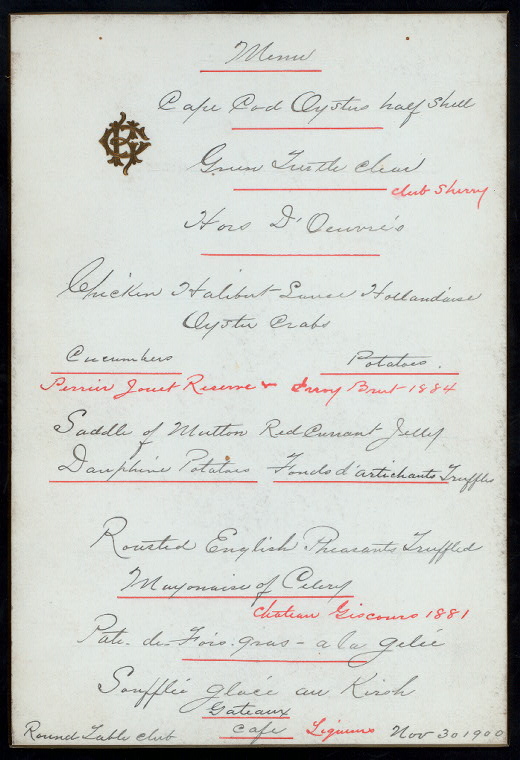 Menu
Cape Cod Oysters half Shell
Green Turtle clear
club Sherry
Hors D'Oeuvre's
Chicken Halibut Sauce Hollandaise
Oyster Crabs
Cucumbers Potatoes.
Perrier Jouet Reserve & Irroy Brut 1884
Saddle of Mutton Red Currant Jelly
Dauphine Potatoes Fonds d'artichants Truffles
Roasted English Pheasants Truffled
Mayonaise of Celery
Chateau Giscours 1881
Pate-de-Fois-gras-a la gelée
Soufflée glacé au Kirsh
Gateaux
Round Table Club Cafe Liqueurs Nov 30 1900